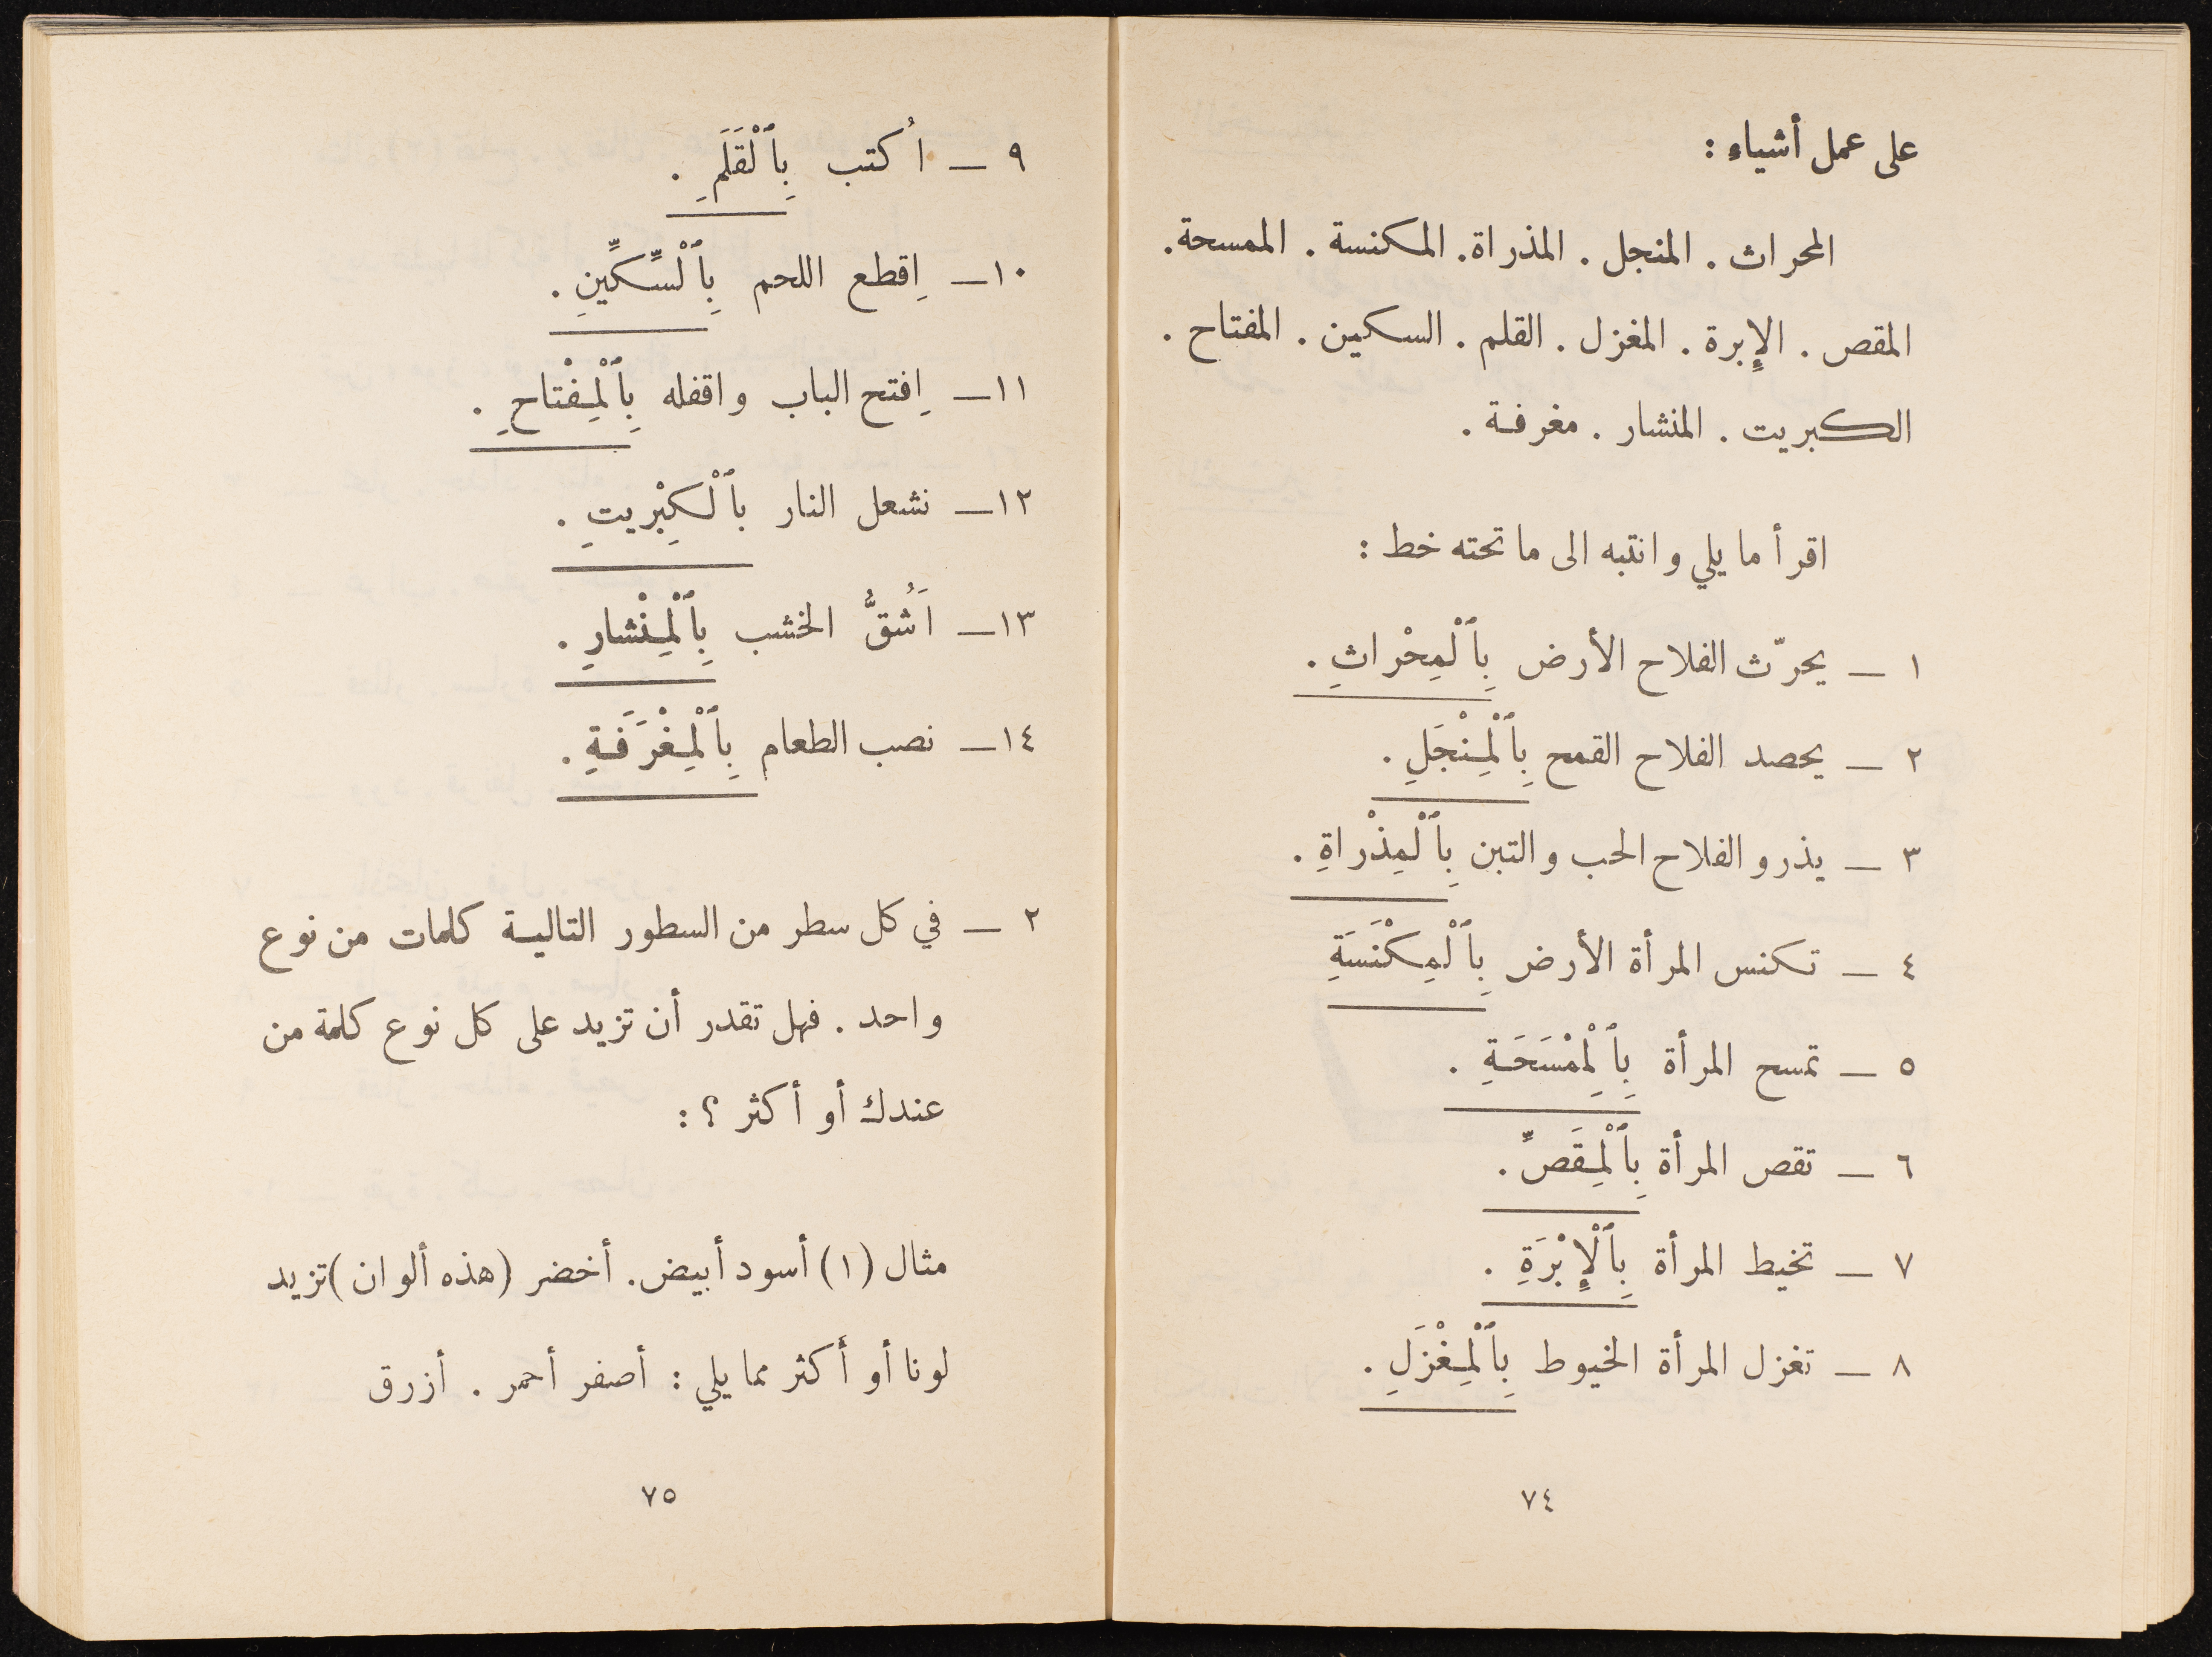 على عمل أشياء :
المحراث . المنجل . المذراة. المكنسة . الممسحة.
المقص . الإبرة . المغزل . القلم . السكين . المفتاح .
الكبريت . المنشار . مغرفة .
اقرأ ما يلي وانتبه الى ما تحته خط :
١ — يحرّث الفلاح الأرض بِٱلْمِحْراثِ .
٢ — يحصد الفلاح القمح بِٱلْمِنْجَلِ .
٣ — يذرو الفلاح الحب والتبن بِٱلْمِذْراةِ .
٤ — تكنس المرأة الأرض بِٱلْمِكْنَسَةِ
٥ — تمسح المرأة بِٱلِمْسَحَةِ .
٦ — تقص المرأة بِٱلْمِقَصِّ .
٧ — تخيط المرأة بِٱلْإِبْرَةِ .
٨ — تغزل المرأة الخيوط بِٱلْمِغْزَلِ .
٧٤
٩ — اُكتب بِٱلْقَلَمِ .
١٠— اِقطع اللحم بِٱلْسِّكِّينِ .
١١— اِفتح الباب واقفله بِٱلْمِفْتاحِ .
١٢— نشعل النار بٱلْكِبْريتِ .
١٣— اَشُقُّ الخشب بِٱلْمِنْشارِ .
١٤— نصب الطعام بِٱلْمِغْرَفَةِ .
٢ — في كل سطر من السطور التالية كلمات من نوع
واحد . فهل تقدر أن تزيد على كل نوع كلمة من
عندك أو أكثر ؟ :
مثال (١) أسود أبيض. أخضر (هذه ألوان) تزيد
لونا أو أكثر مما يلي : أصفر أحمر . أزرق
٧٥